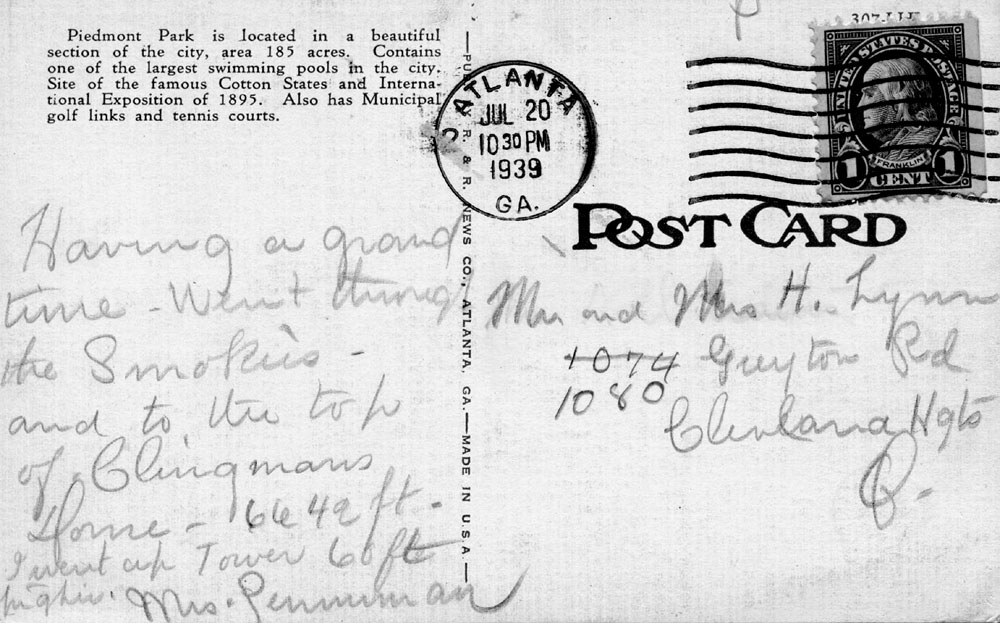 Piedmont Park is located in a beautiful
section of the city, area 185 acres. Contains
one of the largest swimming pools in the city.
Site of the famous Cotton States and Interna-
tional Exposition of 1895. Also has Municipal
golf links and tennis courts.
ATLANTA
JUL 20
10 30 PM
1939
GA.
UNITED STATES POSTAGE
FRANKLIN
1 CENT 1
POST CARD
R. & R. NEWS CO., ATLANTA, GA.—MADE IN U.S.A.
Having a grand
time - Went throug
the Smokies -
and to the top
of Clingmans
Dome - 6642 ft -
I went up Tower 60 ft
higher. Mrs. Penniman
Mr and Mrs H. Lynn
1074 Greyton Rd
1080
Cleveland Hgts
O.